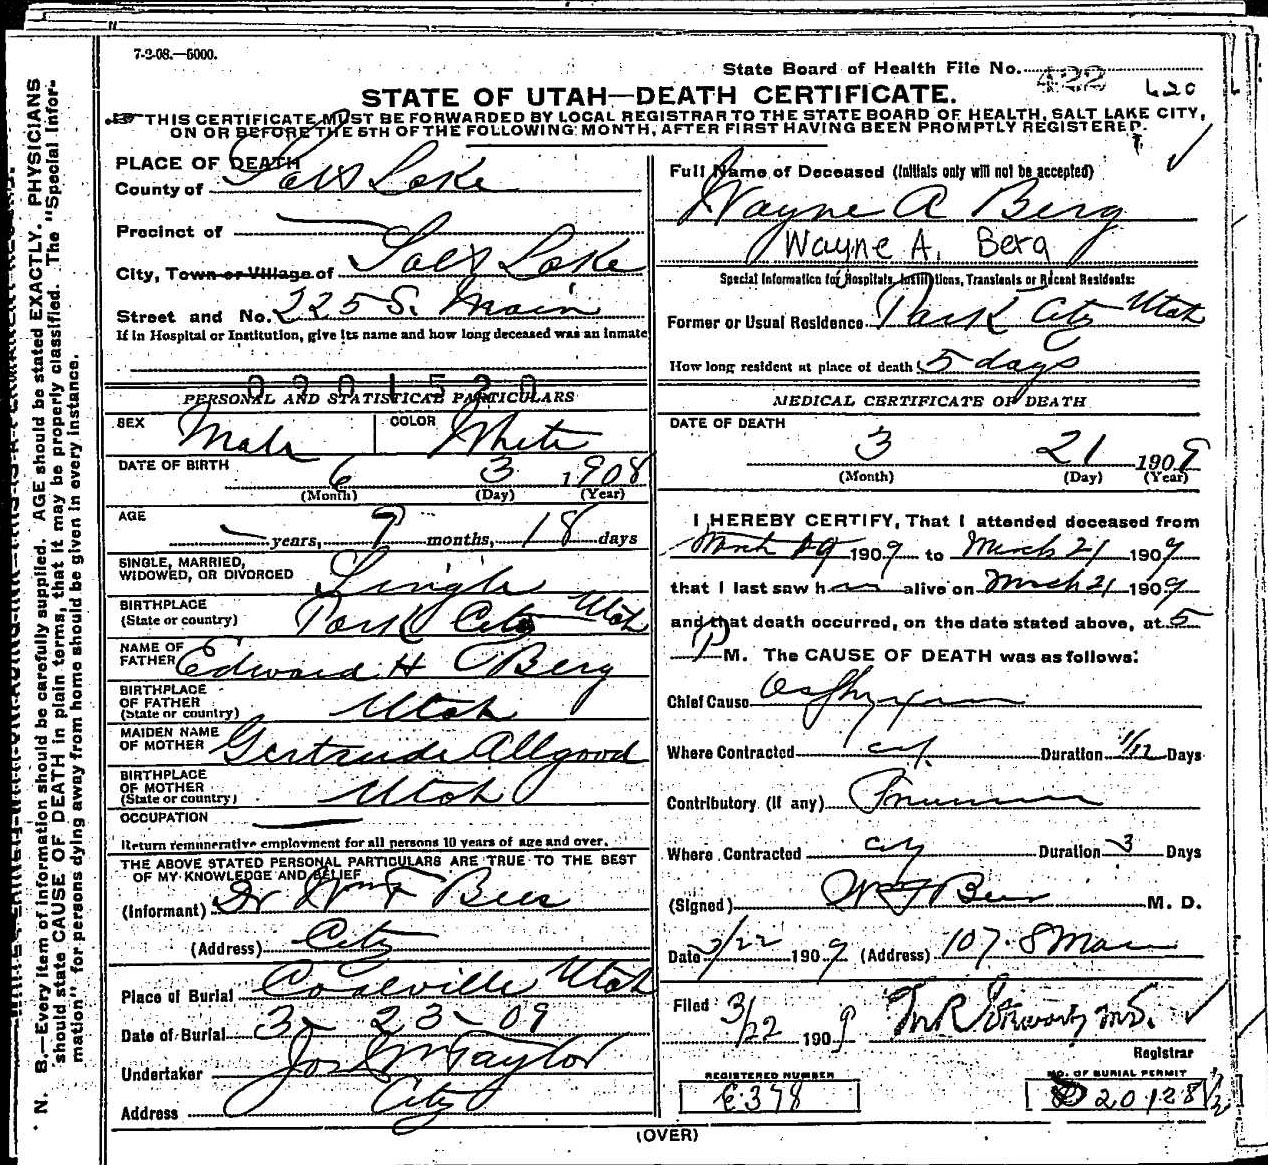 7-2-08.—5000.
State Board of Health File No. 422 420
STATE OF UTAH—DEATH CERTIFICATE.
THIS CERTIFICATE MUST BE FORWARDED BY LOCAL REGISTRAR TO THE STATE BOARD OF HEALTH, SALT LAKE CITY,
ON OR BEFORE THE 5TH OF THE FOLLOWING MONTH, AFTER FIRST HAVING BEEN PROMPTLY REGISTERED.
PLACE OF DEATH
County of Salt Lake
Precinct of —
City, Town or Village of Salt Lake
Street and No. 225 S. Main
If in Hospital or Institution, give its name and how long deceased was an inmate
0201520
PERSONAL AND STATISTICAL PARTICULARS
SEX Male COLOR White
DATE OF BIRTH 6 3 1908
(Month) (Day) (Year)
AGE — years, 9 months, 18 days
SINGLE, MARRIED,
WIDOWED, OR DIVORCED Single
BIRTHPLACE
(State or country) Park City Utah
NAME OF
FATHER Edward H Berg
BIRTHPLACE
OF FATHER
(State or country) Utah
MAIDEN NAME
OF MOTHER Gertrude Allgood
BIRTHPLACE
OF MOTHER
(State or country) Utah
OCCUPATION —
Return remunerative employment for all persons 10 years of age and over.
THE ABOVE STATED PERSONAL PARTICULARS ARE TRUE TO THE BEST
OF MY KNOWLEDGE AND BELIEF
(Informant) Dr Wm F Beer
(Address) City
Place of Burial Coalville Utah
Date of Burial 3-23-09
Undertaker Jos Wm Taylor
Address City
Full Name of Deceased (Initials only will not be accepted)
Wayne A Berg
Wayne A. Berg
Special Information for Hospitals, Institutions, Transients or Recent Residents:
Former or Usual Residence Park City Utah
How long resident at place of death 5 days
MEDICAL CERTIFICATE OF DEATH
DATE OF DEATH
3 21 1909
(Month) (Day) (Year)
I HEREBY CERTIFY, That I attended deceased from
March 19 1909 to March 21 1909
that I last saw him alive on March 21 1909
and that death occurred, on the date stated above, at 5
P M. The CAUSE OF DEATH was as follows:
Chief Cause Asphyxia
Where Contracted city Duration 1/12 Days
Contributory (if any) Pneumonia
Where Contracted city Duration 3 Days
(Signed) W F Beer M. D.
Date 3/22 1909 (Address) 107 S Main
Filed 3/22 1909 M.D.
Registrar
REGISTERED NUMBER
E 378
NO. OF BURIAL PERMIT
20128 1/2
(OVER)
N. B.—Every item of information should be carefully supplied. AGE should be stated EXACTLY. PHYSICIANS
should state CAUSE OF DEATH in plain terms, that it may be properly classified. The "Special Infor-
mation" for persons dying away from home should be given in every instance.